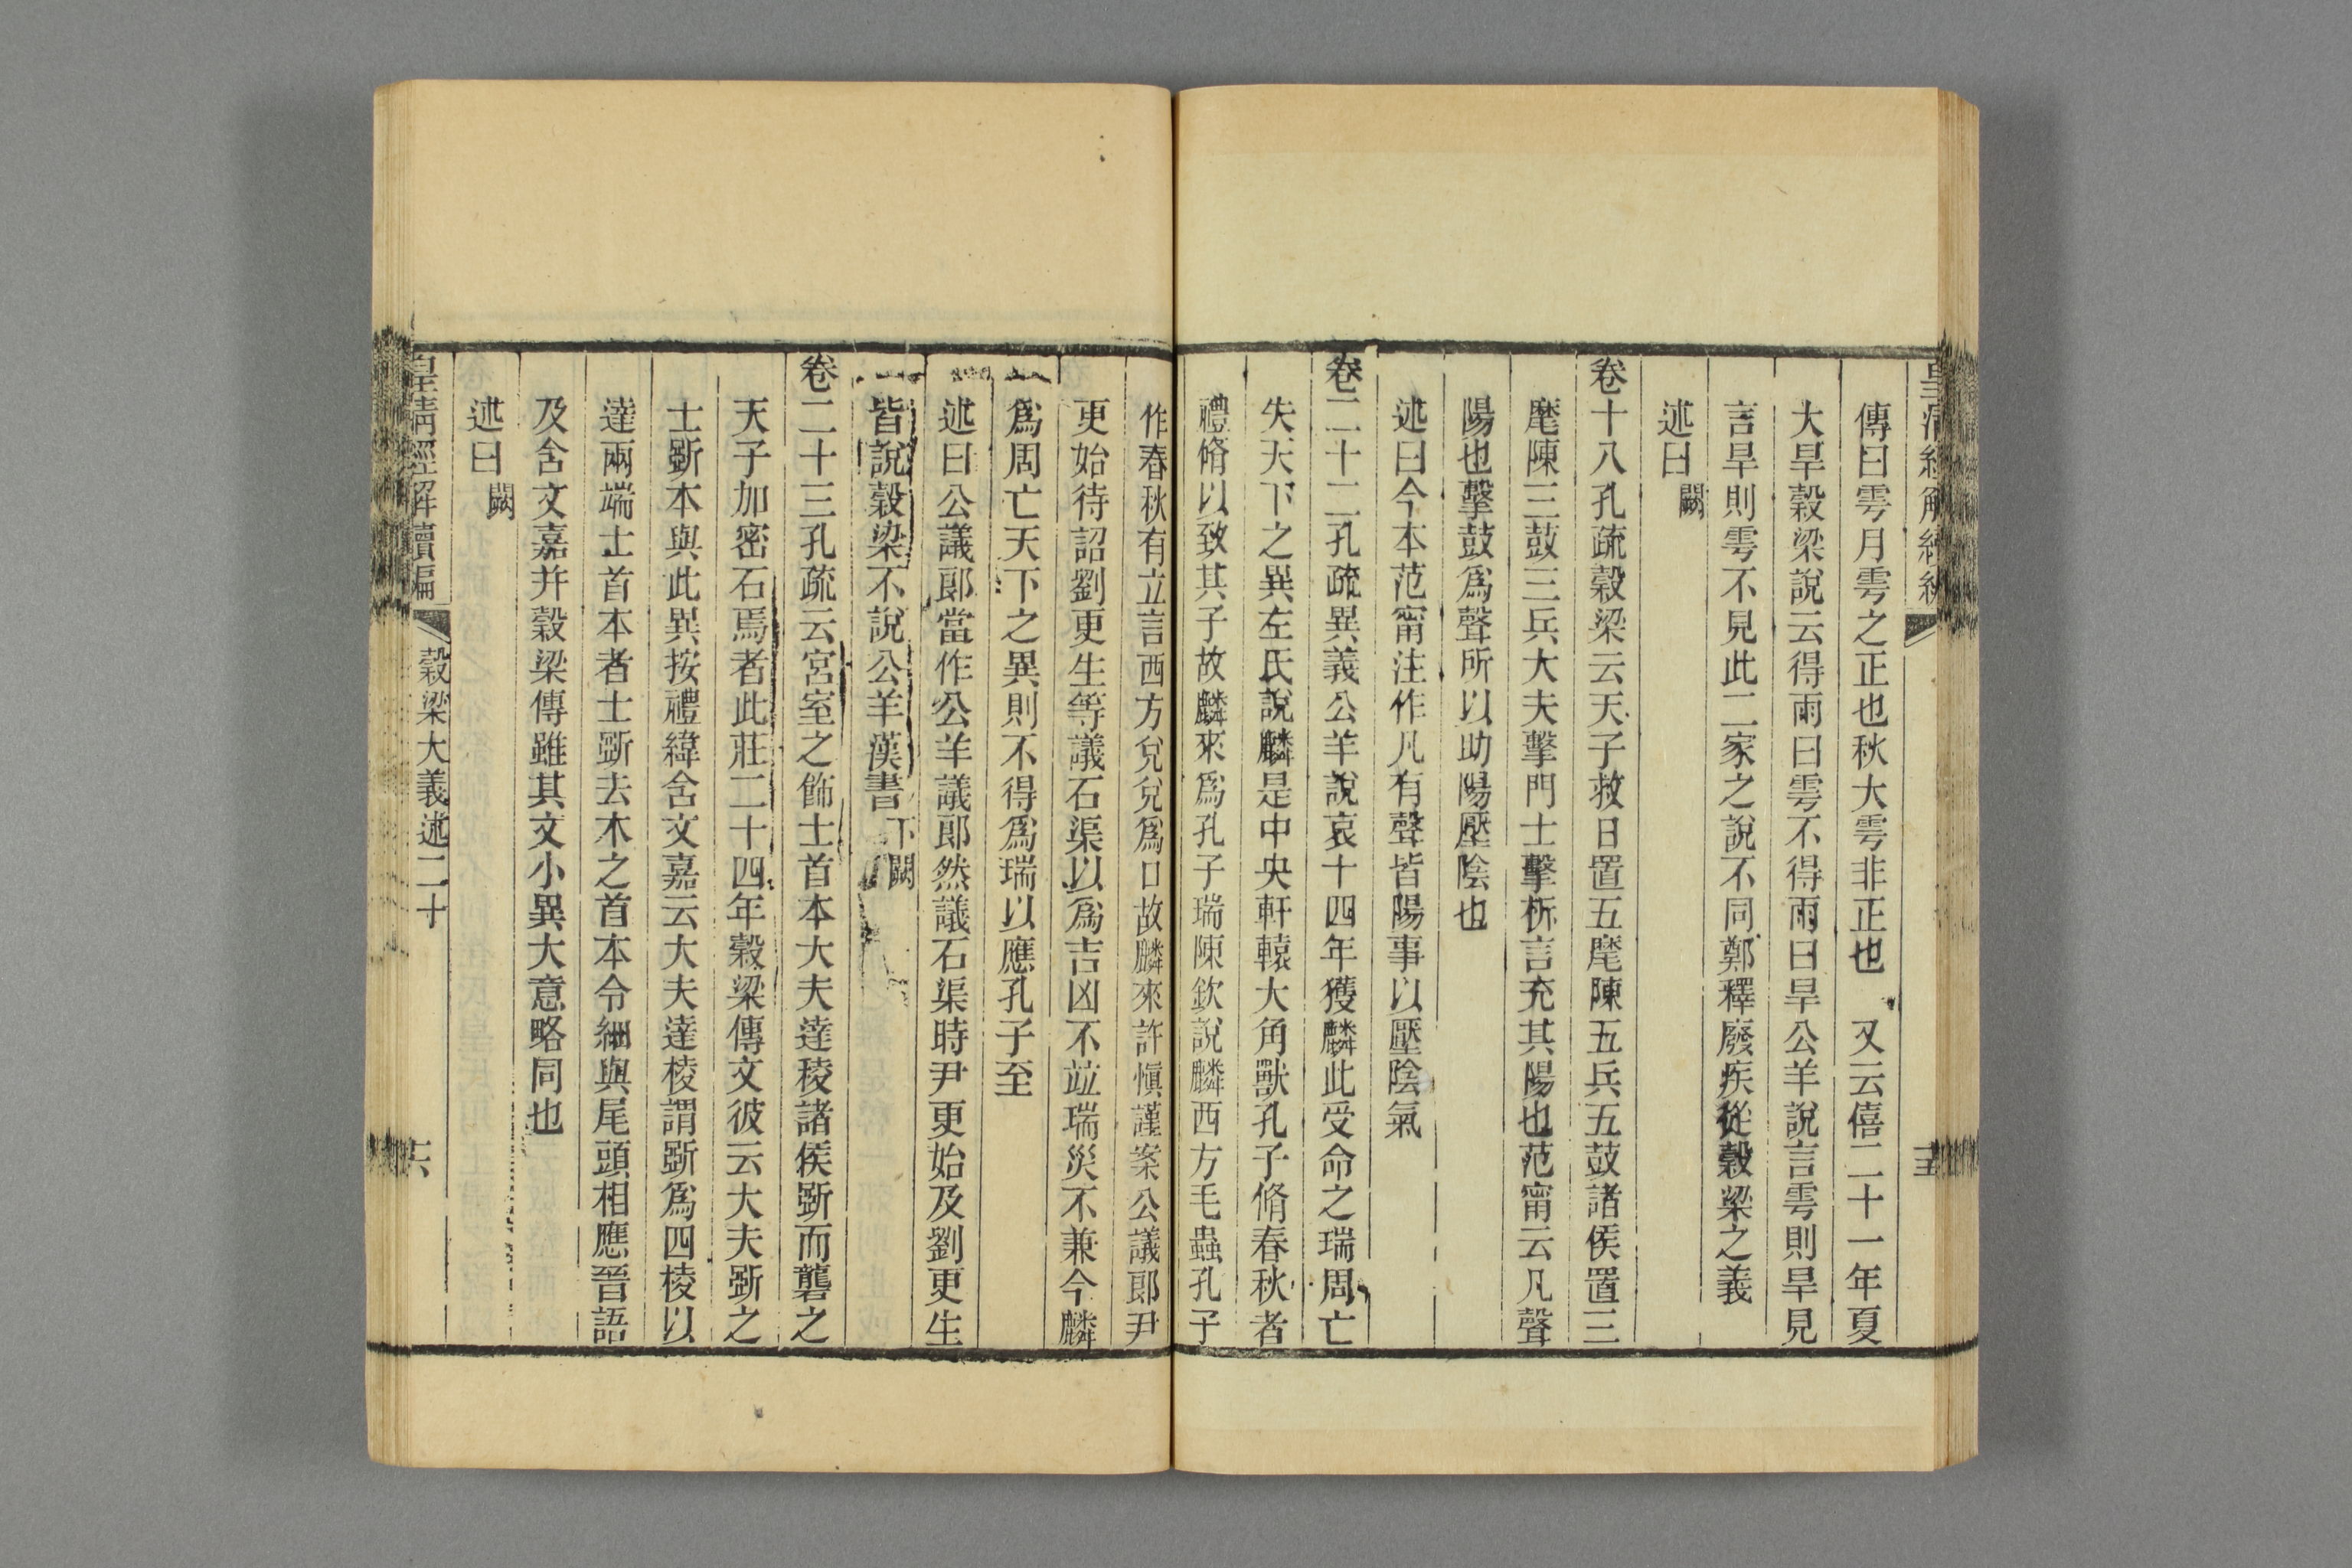 傳曰雩月雩之正也秋大雩非正也　又云僖二十一年夏
大旱穀梁說云得雨曰雩不得雨曰旱公羊說言雩則旱見
言旱則雩不見此二家之說不同鄭釋廢疾從穀梁之義
述曰闕
卷十八孔疏穀梁云天子救日置五麾陳五兵五鼓諸侯置三
麾陳三鼓三兵大夫擊門士擊柝言充其陽也范甯云凡聲
陽也擊鼓爲聲所以助陽壓陰也
述曰今本范甯注作凡有聲皆陽事以壓陰氣
卷二十二孔疏異義公羊說哀十四年獲麟此受命之瑞周亡
失天下之異左氏說麟是中央軒轅大角獸孔子脩春秋者
禮脩以致其子故麟來爲孔子瑞陳欽說麟西方毛蟲孔子
作春秋有立言西方兌兌爲口故麟來許愼謹案公議郎尹
更始待詔劉更生等議石渠以爲吉凶不竝瑞災不兼今麟
爲周亡天下之異則不得爲瑞以應孔子至
述曰公議郎當作公羊議郎然議石渠時尹更始及劉更生
皆說穀梁不說公羊漢書下闕
卷二十三孔疏云宮室之飾士首本大夫達稜諸侯斲而礱之
天子加密石焉者此莊二十四年穀梁傳文彼云大夫斲之
士斲本與此異按禮緯含文嘉云大夫達棱謂斲爲四棱以
達兩端士首本者士斲去木之首本令細與尾頭相應晉語
及含文嘉并穀梁傳雖其文小異大意略同也
述曰闕
皇淸經解續編
穀梁大義述二十